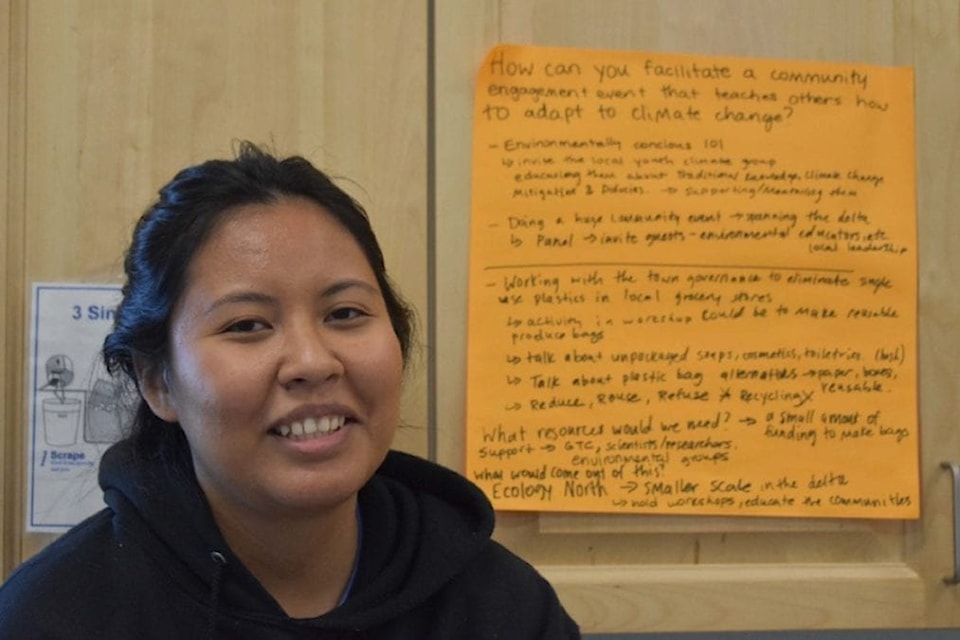 How can you facilitate a community
engagement event that teaches others how
to adapt to climate change?
- Environmentally concious 101
↳ invite the local youth climate group
educating them about Traditional Knowledge, Climate Change
Mitigation & Policies. → Supporting/Mentoring them
- Doing a huge community event → spanning the delta
↳ Panel → invite guests - environmental educators, etc
local leadership
- Working with the town governance to eliminate single
use plastics in local grocery stores
↳ activity in workshop could be to make reusable
produce bags
↳ talk about unpackaged soaps, cosmetics, toiletries.
↳ Talk about plastic bag alternatives → paper, boxes,
reusable.
↳ Reduce, Reuse, Refuse * Recycling X
What resources would we need? → a small amount of
funding to make bags
Support → GTC, scientists/researchers.
environmental groups
What would come out of this?
Ecology North → Smaller scale in the delta
↳ hold workshops, educate the communities
3 Sin
1
Scrape